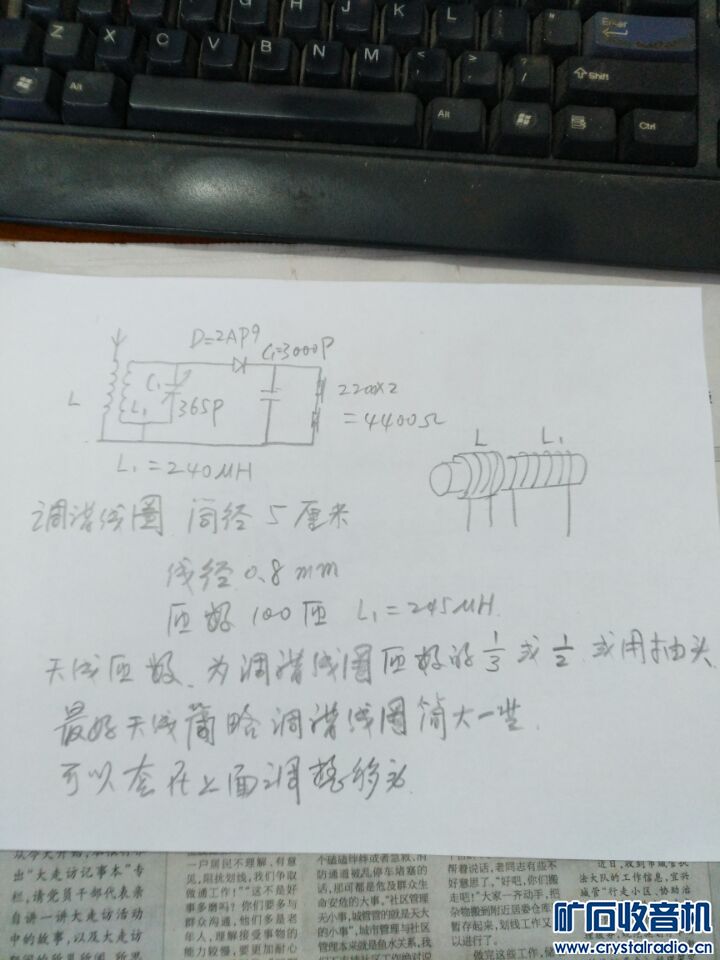 G H J K L
Enter
Z X C V B N M < , > . ? / Shift
Alt Alt Ctrl
D=2AP9
C1=3000P
L
C1
L1
365P
2200×2
=4400Ω
L1=240μH
L L1
调谐线圈 筒径5厘米
线径0.8mm
匝数100匝 L1=245μH.
天线匝数、为调谐线圈匝数的1/3或1/2或用抽头
最好天线筒略调谐线圈筒大一些.
可以套在上面调整移动.
出"大走访记事本"专
栏,请党员干部代表亲
自讲一讲大走访活动
中的故事,以及大走访
一户居民不理解,有意
见,阻扰划线,我们争取
做通工作!""这不是好
事多磨吗?你们要多与
群众沟通,他们多是老
年人,理解接受事物的
能力较慢,要更加耐心
通道被乱停车堵塞的
话,那可都是危及群众生
命安危的大事,"社区管理
无小事,城管管的就是天大
的小事",城市管理与社区
管理本来就是鱼水关系,我
帮着说话,老同志有些不
好意思了,"好吧,你们搬
走吧!"大家一齐动手,把
杂物搬到附近居委会仓库
暂存起来,划线工作又
以进行了。
做完这些工作,储
近日,收到市城管执
法大队的工作信息,宝兴
城管"行走小区、协助治
矿石收音机
www.crystalradio.cn